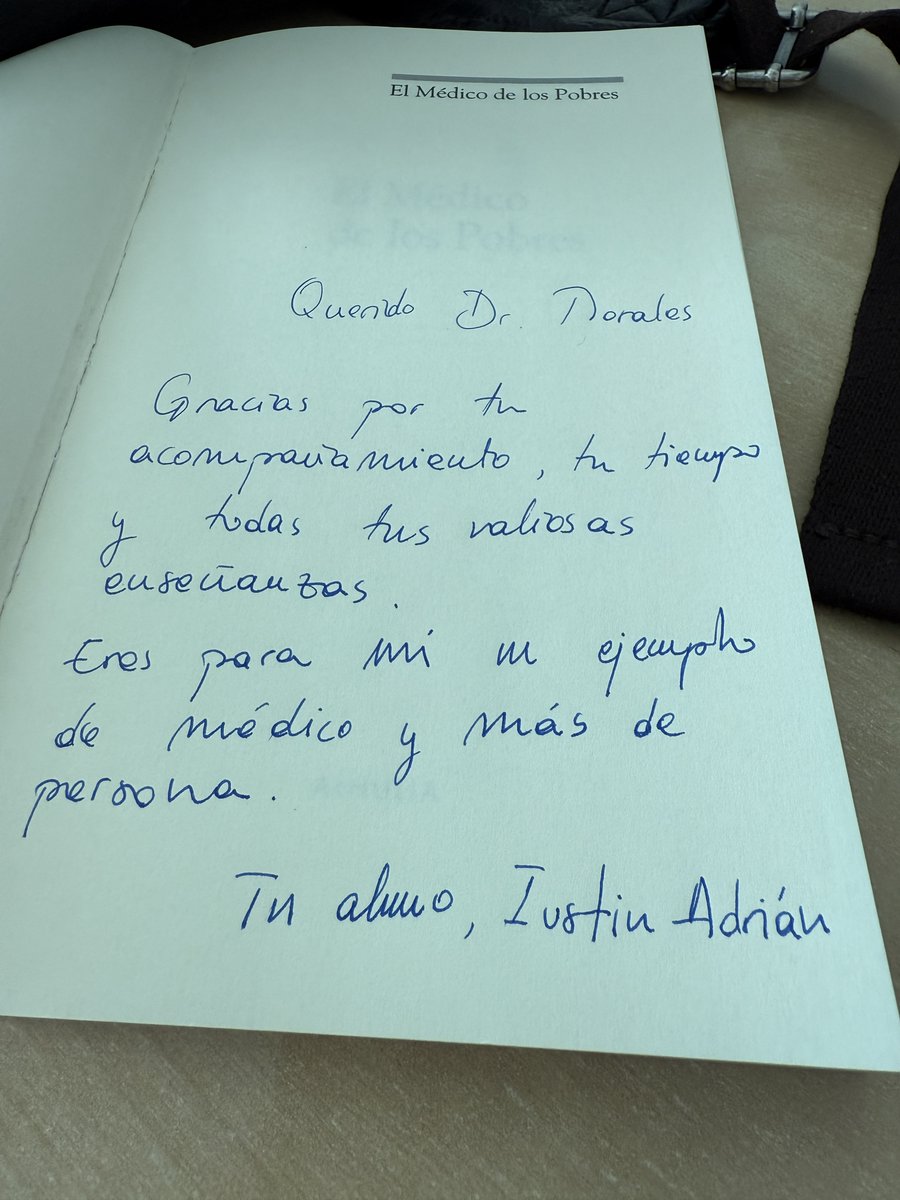 El Médico de los Pobres
El Médico
de los Pobres
Querido Dr. Morales
Gracias por tu
acompañamiento, tu tiempo
y todas tus valiosas
enseñanzas.
Eres para mi un ejemplo
de médico y más de
persona.
Tu alumno, Iustin Adrián